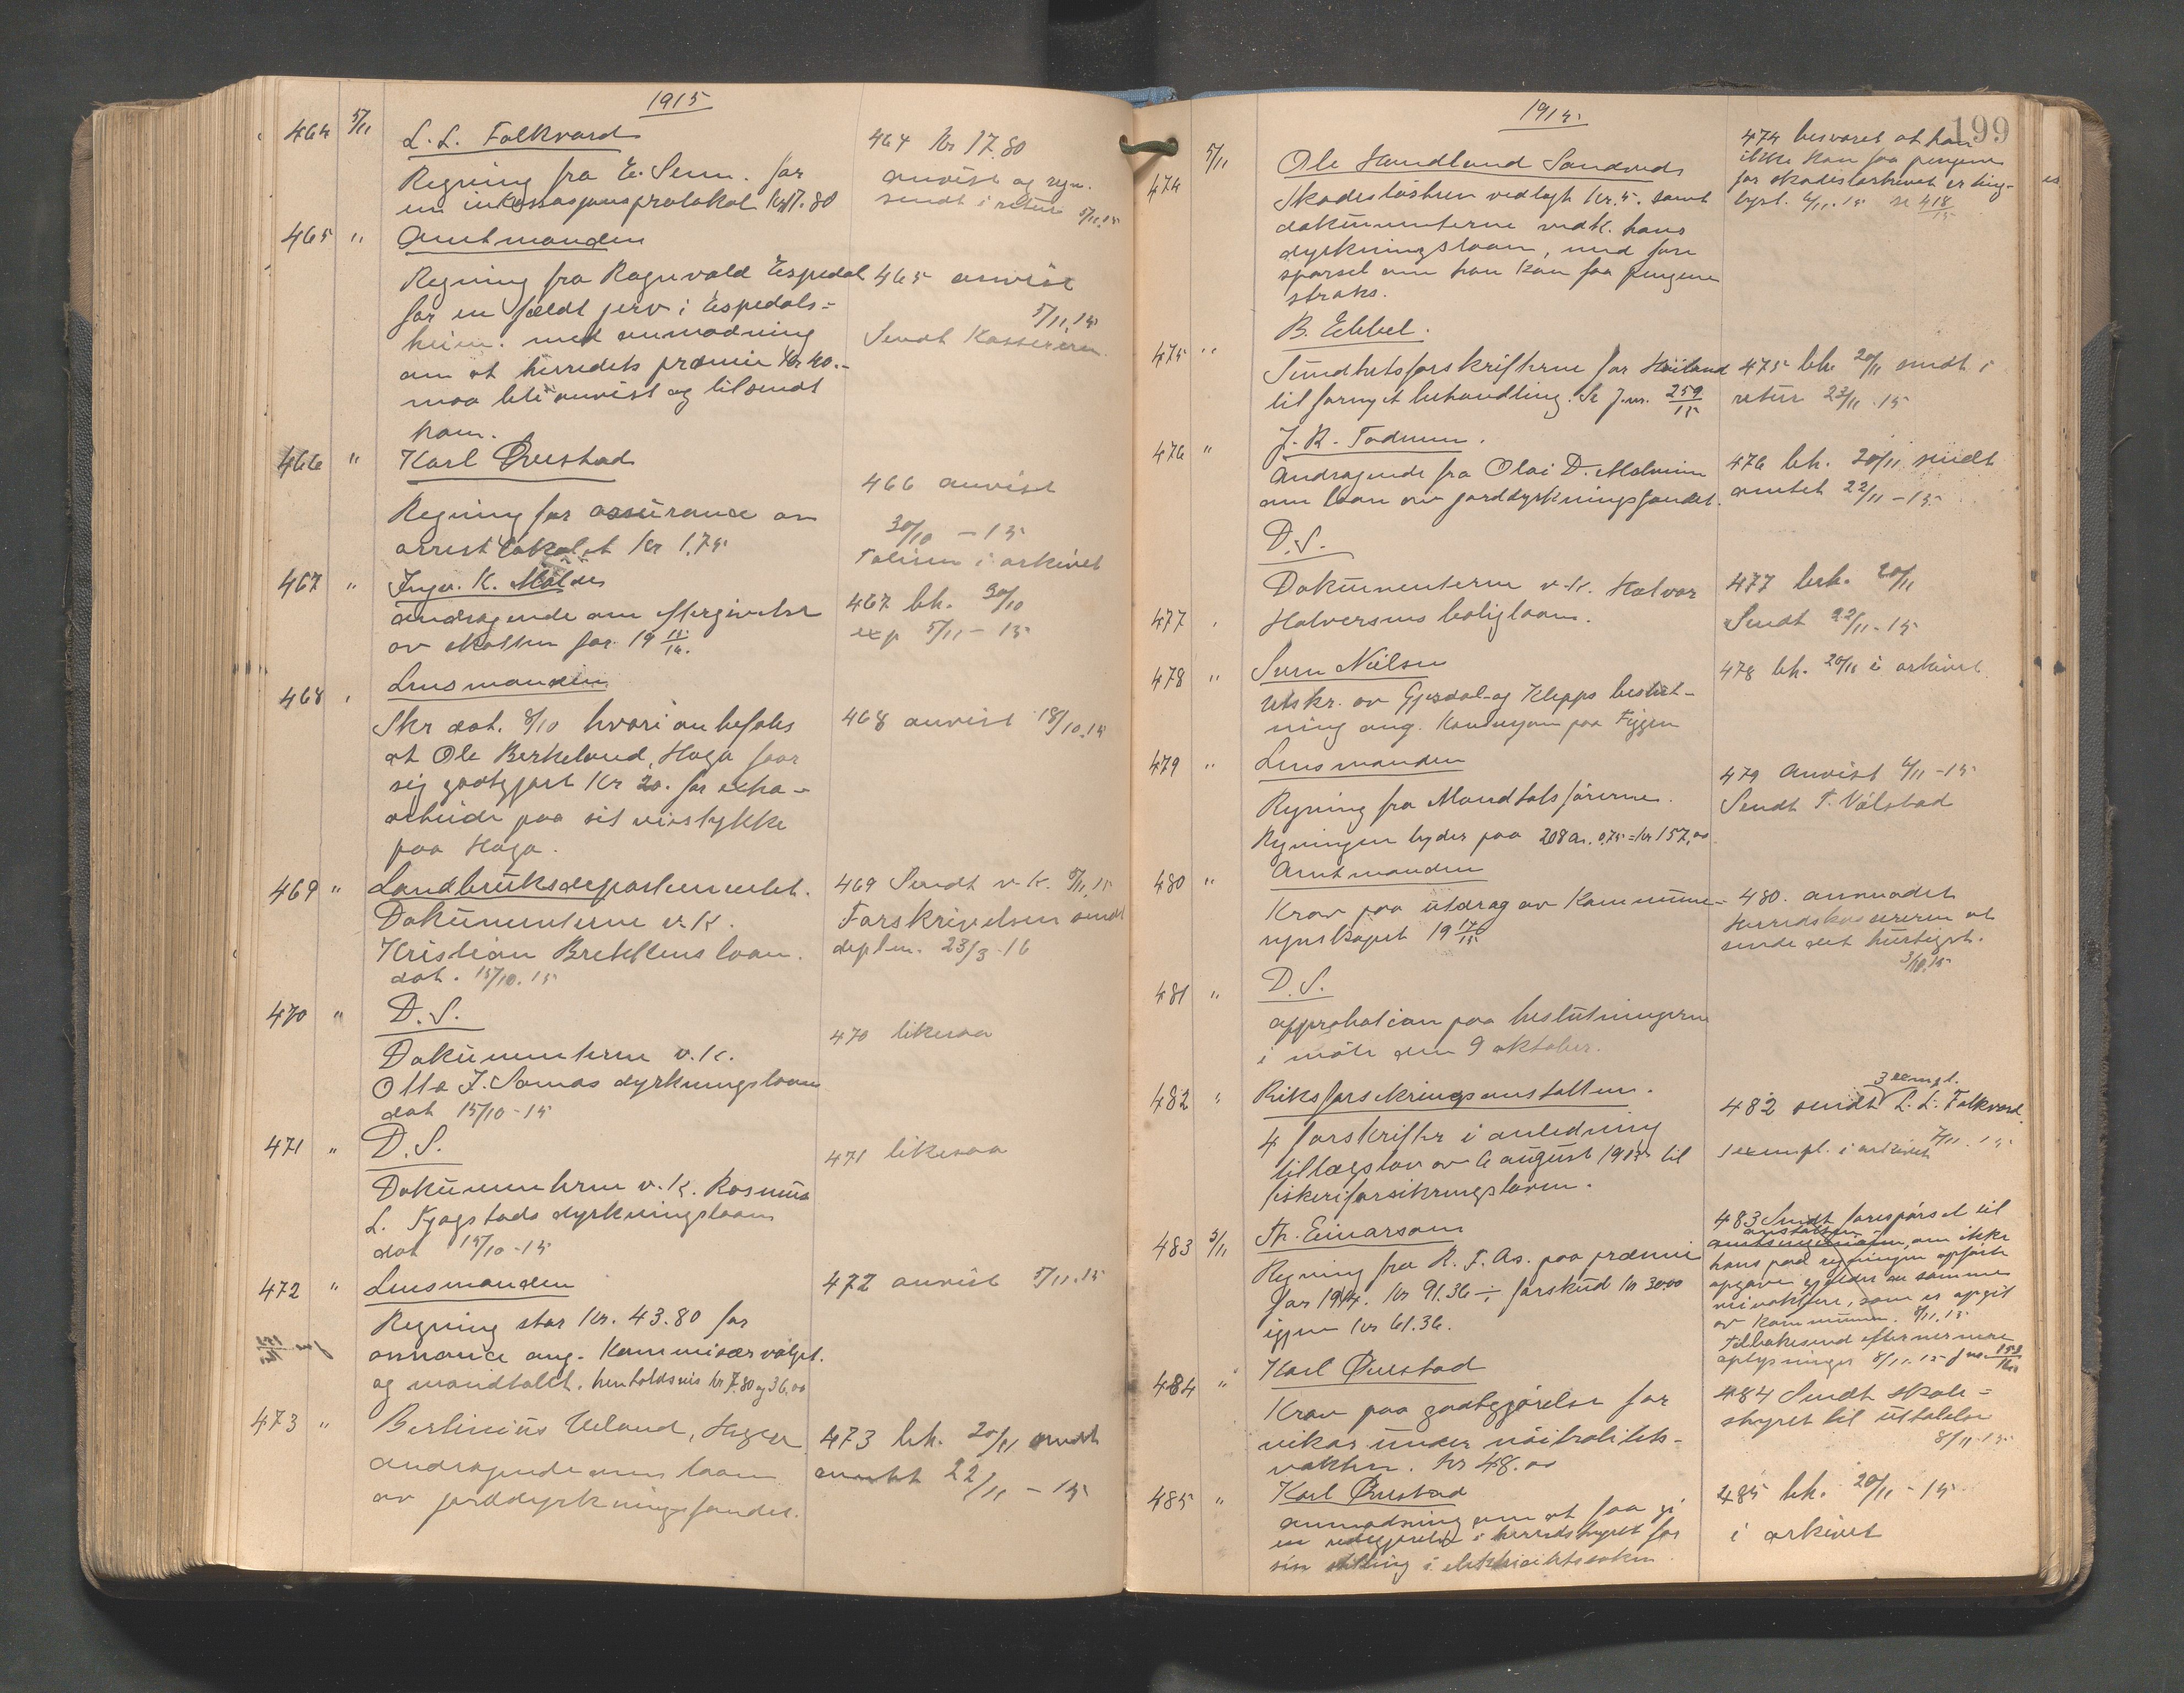 1915
464 5/11 L. L. Folkvord
Regning fra E. Senn. for
en inkassasjonsprotokol kr 17.80
464 kr 17.80
anvist og regn.
sendt i retur 5/11.15
465 " Amtmanden
Regning fra Ragnvald Espedal
for en fældt jerv i Espedals-
heien. med anmodning
om at herredets præmie kr 40.-
maa bli anvist og tilsendt
ham.
465 anvist
5/11.15
Sendt Kassereren.
466 " Karl Ørestad
Regning for assurance av
arrestlokalet kr 1.75
466 anvist
30/10 - 15
Polisen i arkivet
467 " Ingv. K. Møldes
andragende om eftergivelse
av skatten for 19 15/16.
467 bh. 30/10
exp 5/11 - 15
468 " Lensmanden
Skr dat. 8/10 hvori anbefales
at Ole Berkeland, Høga faar
sig godtgjort kr 20. for extra-
arbeide paa sit veistykke
paa Høga.
468 anvist 18/10.15
469 " Landbruksdepartementet.
Dokumenterne v. k.
Kristian Brekkens laan.
dat. 15/10.15
469 Sendt v. k. 5/11.15
Forskrivelsen sendt
deptm. 23/3-16
470 " D. S.
Dokumenterne v. k.
Otto J. Somas dyrkningslaan
dat 15/10-15
470 likesaa
471 " D. S.
Dokumenterne v. k. Rasmus
L. Tjøgstads dyrkningslaan
dat 15/10-15
471 likesaa
472 " Lensmanden
Regning stor kr. 43.80 for
annonce ang. Kommisærvalget.
og mandtallet. henholdsvis kr 7.80 og 36.00
472 anvist 5/11.15
473 " Berlinius Ueland, Høgen
andragende om laan
av jorddyrkningsfondet.
473 bh. 20/11 sendt
amtet 22/11 - 15
1915
199
5/11
474 Ole Haudland Sandveds
Skadesløsbrev vedlagt kr. 5. samt
dokumenterne vedk. hans
dyrkningslaan, med fore
spørsel om han kan faa pengene
straks.
474 besvaret at han
ikke kan faa pengene
før skadesløsbrevet er ting-
lyst. 6/11.15 se 418/15
B. Ebbel.
475 " Sundhetsforskrifterne for Høiland
til fornyet behandling. Se J.nr. 259/15
475 bh. 20/11 sendt i
retur 23/11.15
476 " J. R. Todnem.
Andragende fra Olai D. Malmim
om laan av jorddyrkningsfondet.
476 bh. 20/11 sendt
amtet 22/11 - 15
D. S.
Dokumenterne v. k. Halvor
477 " Halvorsens boliglaan.
477 beh. 20/11
Sendt 22/11-15
478 " Svem Nielsen
Utskr. av Gjesdal og Klepps beslut-
ning ang. Konsesjon paa Figgen
478 bh. 20/11 i arkivet
479 " Lensmanden
Regning fra Mandtalsførerne.
Regningen lyder paa 208 a. 0.75 = kr 157.00
479 anvist 6/11-15
Sendt T. Vølstad
480 " Amtmanden
Krav paa utdrag av Kommune-
regnskapet 19 14/15
480. anmodet
Herredskassereren at
sende det hurtigst.
3/10.15
481 " D. S.
approbation paa beslutningerne
i møte den 9 oktober.
482 " Riksforsikringsanstalten.
4 forskrifter i anledning
tillægslov av 6 august 1915 til
fiskeriforsikringsloven.
3 exempl.
482 sendt L. L. Folkvord
1 exempl. i arkivet 7/11.15
483 5/11 Th. Einarson
Regning fra R. F. As. paa præmie
for 1914. kr 91.36 ÷ forskud kr 30.00
igjen kr 61.36.
483 Sendt forespørsel til
anstalten
om ikke
hans paa regningen opførte
opgave gjælder den samme
som er opgit
av kommunen. 8/11.15
Tilbakesend efter nærmere
oplysninger 8/11.15 J no
484 " Karl Ørestad
Krav paa godtgjørelse for
vikar under nøitralitets-
vakten. kr 48.00
484 Sendt skole-
styret til uttalelse
8/11.15
485 " Karl Ørestad
anmodning om at faa gi
en redegjørelse i herredsstyret for
sin stilling i elektricitetssaken.
485 bh. 20/11 - 15
i arkivet